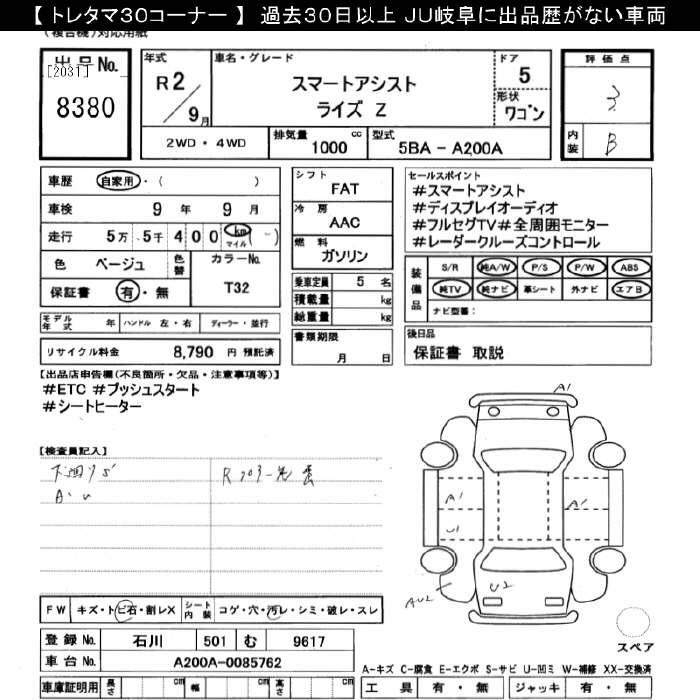 【 トレタマ30コーナー 】 過去30日以上 JU岐阜に出品歴がない車両
(複合機)対応用紙
出品No.
[2031]
8380
年式
R2/9月
車名・グレード
スマートアシスト
ライズ Z
ドア
5
形状
ワゴン
評価点
3
内装
B
2WD・4WD
排気量 1000 cc
型式 5BA - A200A
車歴 自家用・( )
車検 9年 9月
走行 5万 5千 400 km マイル ( - )
色 ベージュ 色替
カラーNo.
T32
保証書 有・無
シフト
FAT
冷房
AAC
燃料
ガソリン
乗車定員 5 名
積載量 kg
総重量 kg
書類期限
月 日
セールスポイント
#スマートアシスト
#ディスプレイオーディオ
#フルセグTV#全周囲モニター
#レーダークルーズコントロール
装備品
S/R 純A/W P/S P/W ABS
純TV 純ナビ 革シート 外ナビ エアB
ナビ型番:
モデル年式 年 ハンドル 左・右 ディーラー・並行
リサイクル料金 8,790 円 預託済
後日品
保証書 取説
【出品店申告欄(不良箇所・欠品・注意事項等)】
#ETC #プッシュスタート
#シートヒーター
【検査員記入】
A・U
A1
A1
A1
U1
U2
AU2
FW キズ・トビ石・割レX シート内装 コゲ・穴・汚レ・シミ・破レ・スレ
スペア
登録No. 石川 501 む 9617
車台No. A200A-0085762
A-キズ C-腐食 E-エクボ S-サビ U-凹ミ W-補修 XX-交換済
車庫証明用 長さ cm 幅 cm 高さ cm
工具 有・無 ジャッキ 有・無